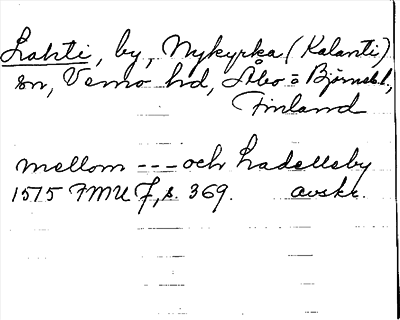 Lahti, by, Nykyrka (Kalanti)
sn, Vemo hd, Åbo = Björneb. l.,
Finland
mellom --- och Ladelleby
1515 FMU 7, s. 369. avskr.